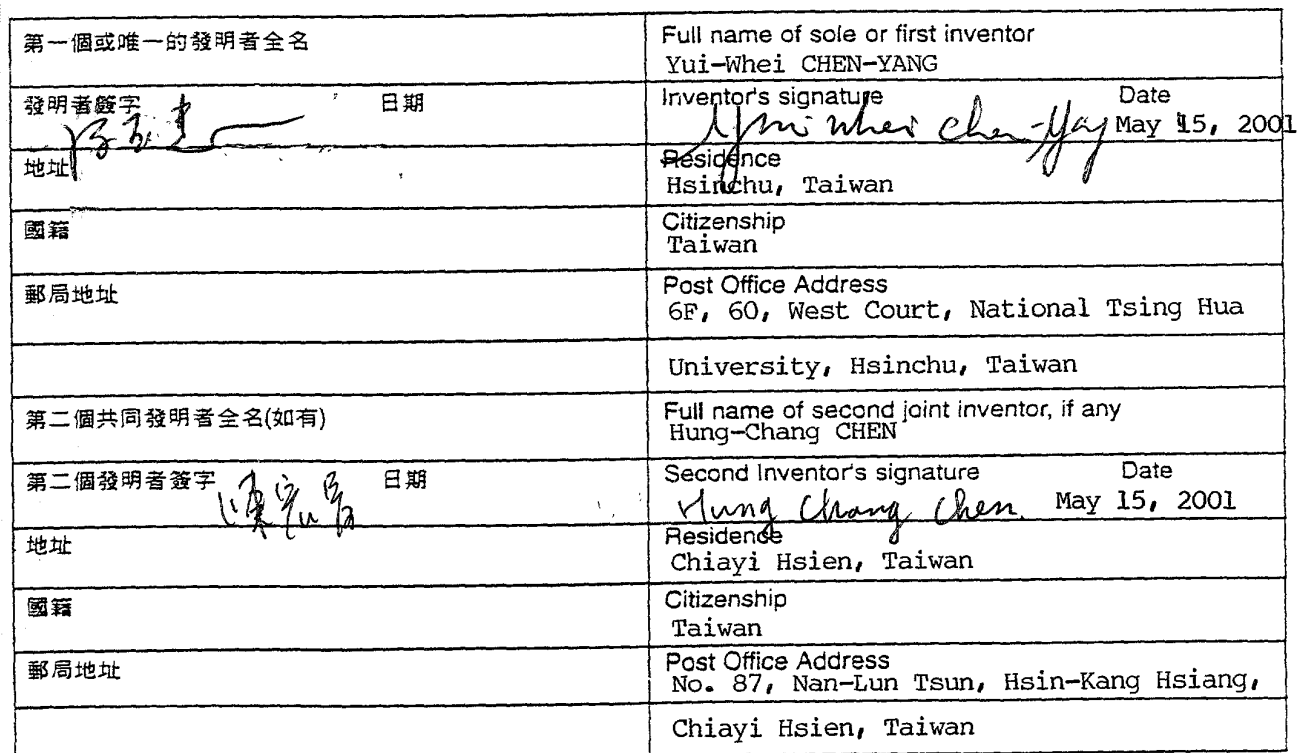 第一個或唯一的發明者全名
Full name of sole or first inventor
Yui-Whei CHEN-YANG
發明者簽字 日期
Inventor's signature Date
Yui Whei Chen-Yang May 15, 2001
地址
Residence
Hsinchu, Taiwan
國籍
Citizenship
Taiwan
郵局地址
Post Office Address
6F, 60, West Court, National Tsing Hua
University, Hsinchu, Taiwan
第二個共同發明者全名(如有)
Full name of second joint inventor, if any
Hung-Chang CHEN
第二個發明者簽字 日期
Second Inventor's signature Date
Hung Chang Chen May 15, 2001
地址
Residence
Chiayi Hsien, Taiwan
國籍
Citizenship
Taiwan
郵局地址
Post Office Address
No. 87, Nan-Lun Tsun, Hsin-Kang Hsiang,
Chiayi Hsien, Taiwan